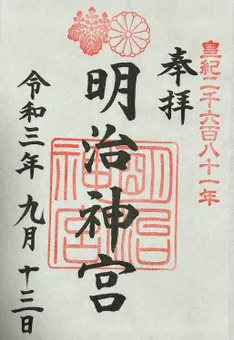 皇紀二千六百八十一年
奉拝
明治神宮
明治神宮
令和三年 九月 十三日